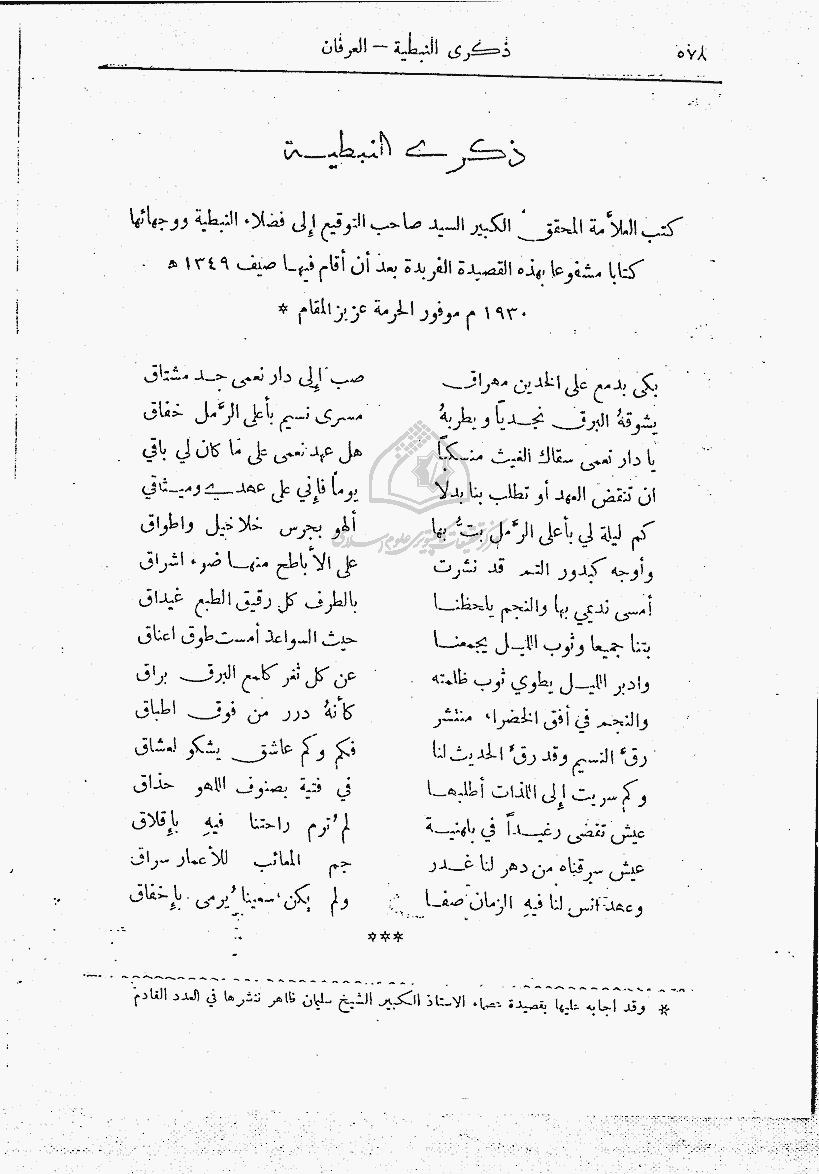 ٥٧٨ ذكرى النبطية – العرفان
ذكرى النبطية
كتب العلاّمة المحقق الكبير السيد صاحب التوقيع إلى فضلاء النبطية ووجهائها
كتابا مشفوعا بهذه القصيدة الفريدة بعد أن أقام فيها صيف ١٣٤٩ هـ
١٩٣٠ م موفور الحرمة عزيز المقام *
بكى بدمع على الخدين مهراق صب إلى دار نعمى جد مشتاق
يشوقهُ البرق نجدياً ويطربهُ مسرى نسيم بأعلى الرَّمل خفاق
يا دار نعمى سقاك الغيث منسكباً هل عهد نعمى على ما كان لي باقي
ان تنقض العهد أو تطلب بنا بدلا يوماً فإني على عهدي وميثاقي
كم ليلة لي بأعلى الرَّمل بتُّ بها ألهو بجرس خلاخيل واطواق
وأوجه كبدور التم قد نشرت على الأباطح منها ضوء اشراق
أمسى نديمي بها والنجم يلحظنا بالطرف كل رقيق الطبع غيداق
بتنا جميعا وثوب الليل يجمعنا حيث السواعد أمست طوق اعناق
وادبر الليل يطوي ثوب ظلمته عن كل ثغر كلمع البرق براق
والنجم في أفق الخضراء منتشر كأنهُ درر من فوق اطباق
رقَّ النسيم وقد رقَّ الحديث لنا فكم وكم عاشق يشكو لعشاق
وكم سريت إلى اللذات أطلبها في فتية بصنوف اللهو حذاق
عيش تقضى رغيداً في بلهنية لم تُرم راحتنا فيهِ بإقلاق
عيش سرقناه من دهر لنا غدر جم المعائب للأعمار سراق
وعهد انس لنا فيهِ الزمان صفا ولم يكن سعينا يُرمى بإخفاق
***
* وقد اجابه عليها بقصيدة عصماء الاستاذ الكبير الشيخ سليمان ظاهر ننشرها في العدد القادم